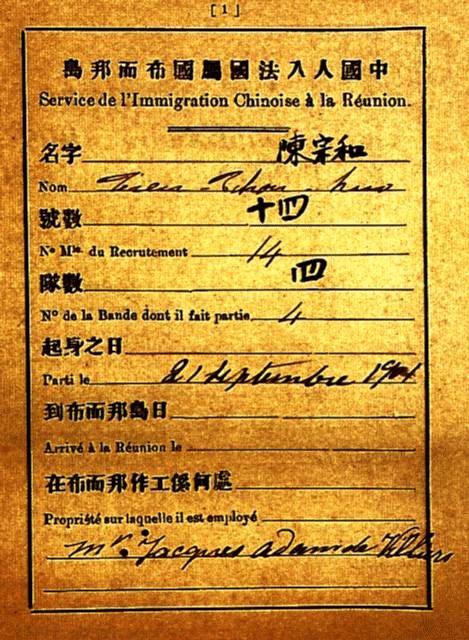 [1]
中國人入法國屬國布而邦島
Service de l'Immigration Chinoise à la Réunion.
名字 陳宗和
Nom
號數 十四
No Mle. du Recrutement 14
隊數 四
No de la Bande dont il fait partie 4
起身之日
Parti le 21 septembre 1901
到布而邦島日
Arrivé à la Réunion le
在布而邦作工係何處
Propriété sur laquelle il est employé
Mr. Jacques adam de Villiers